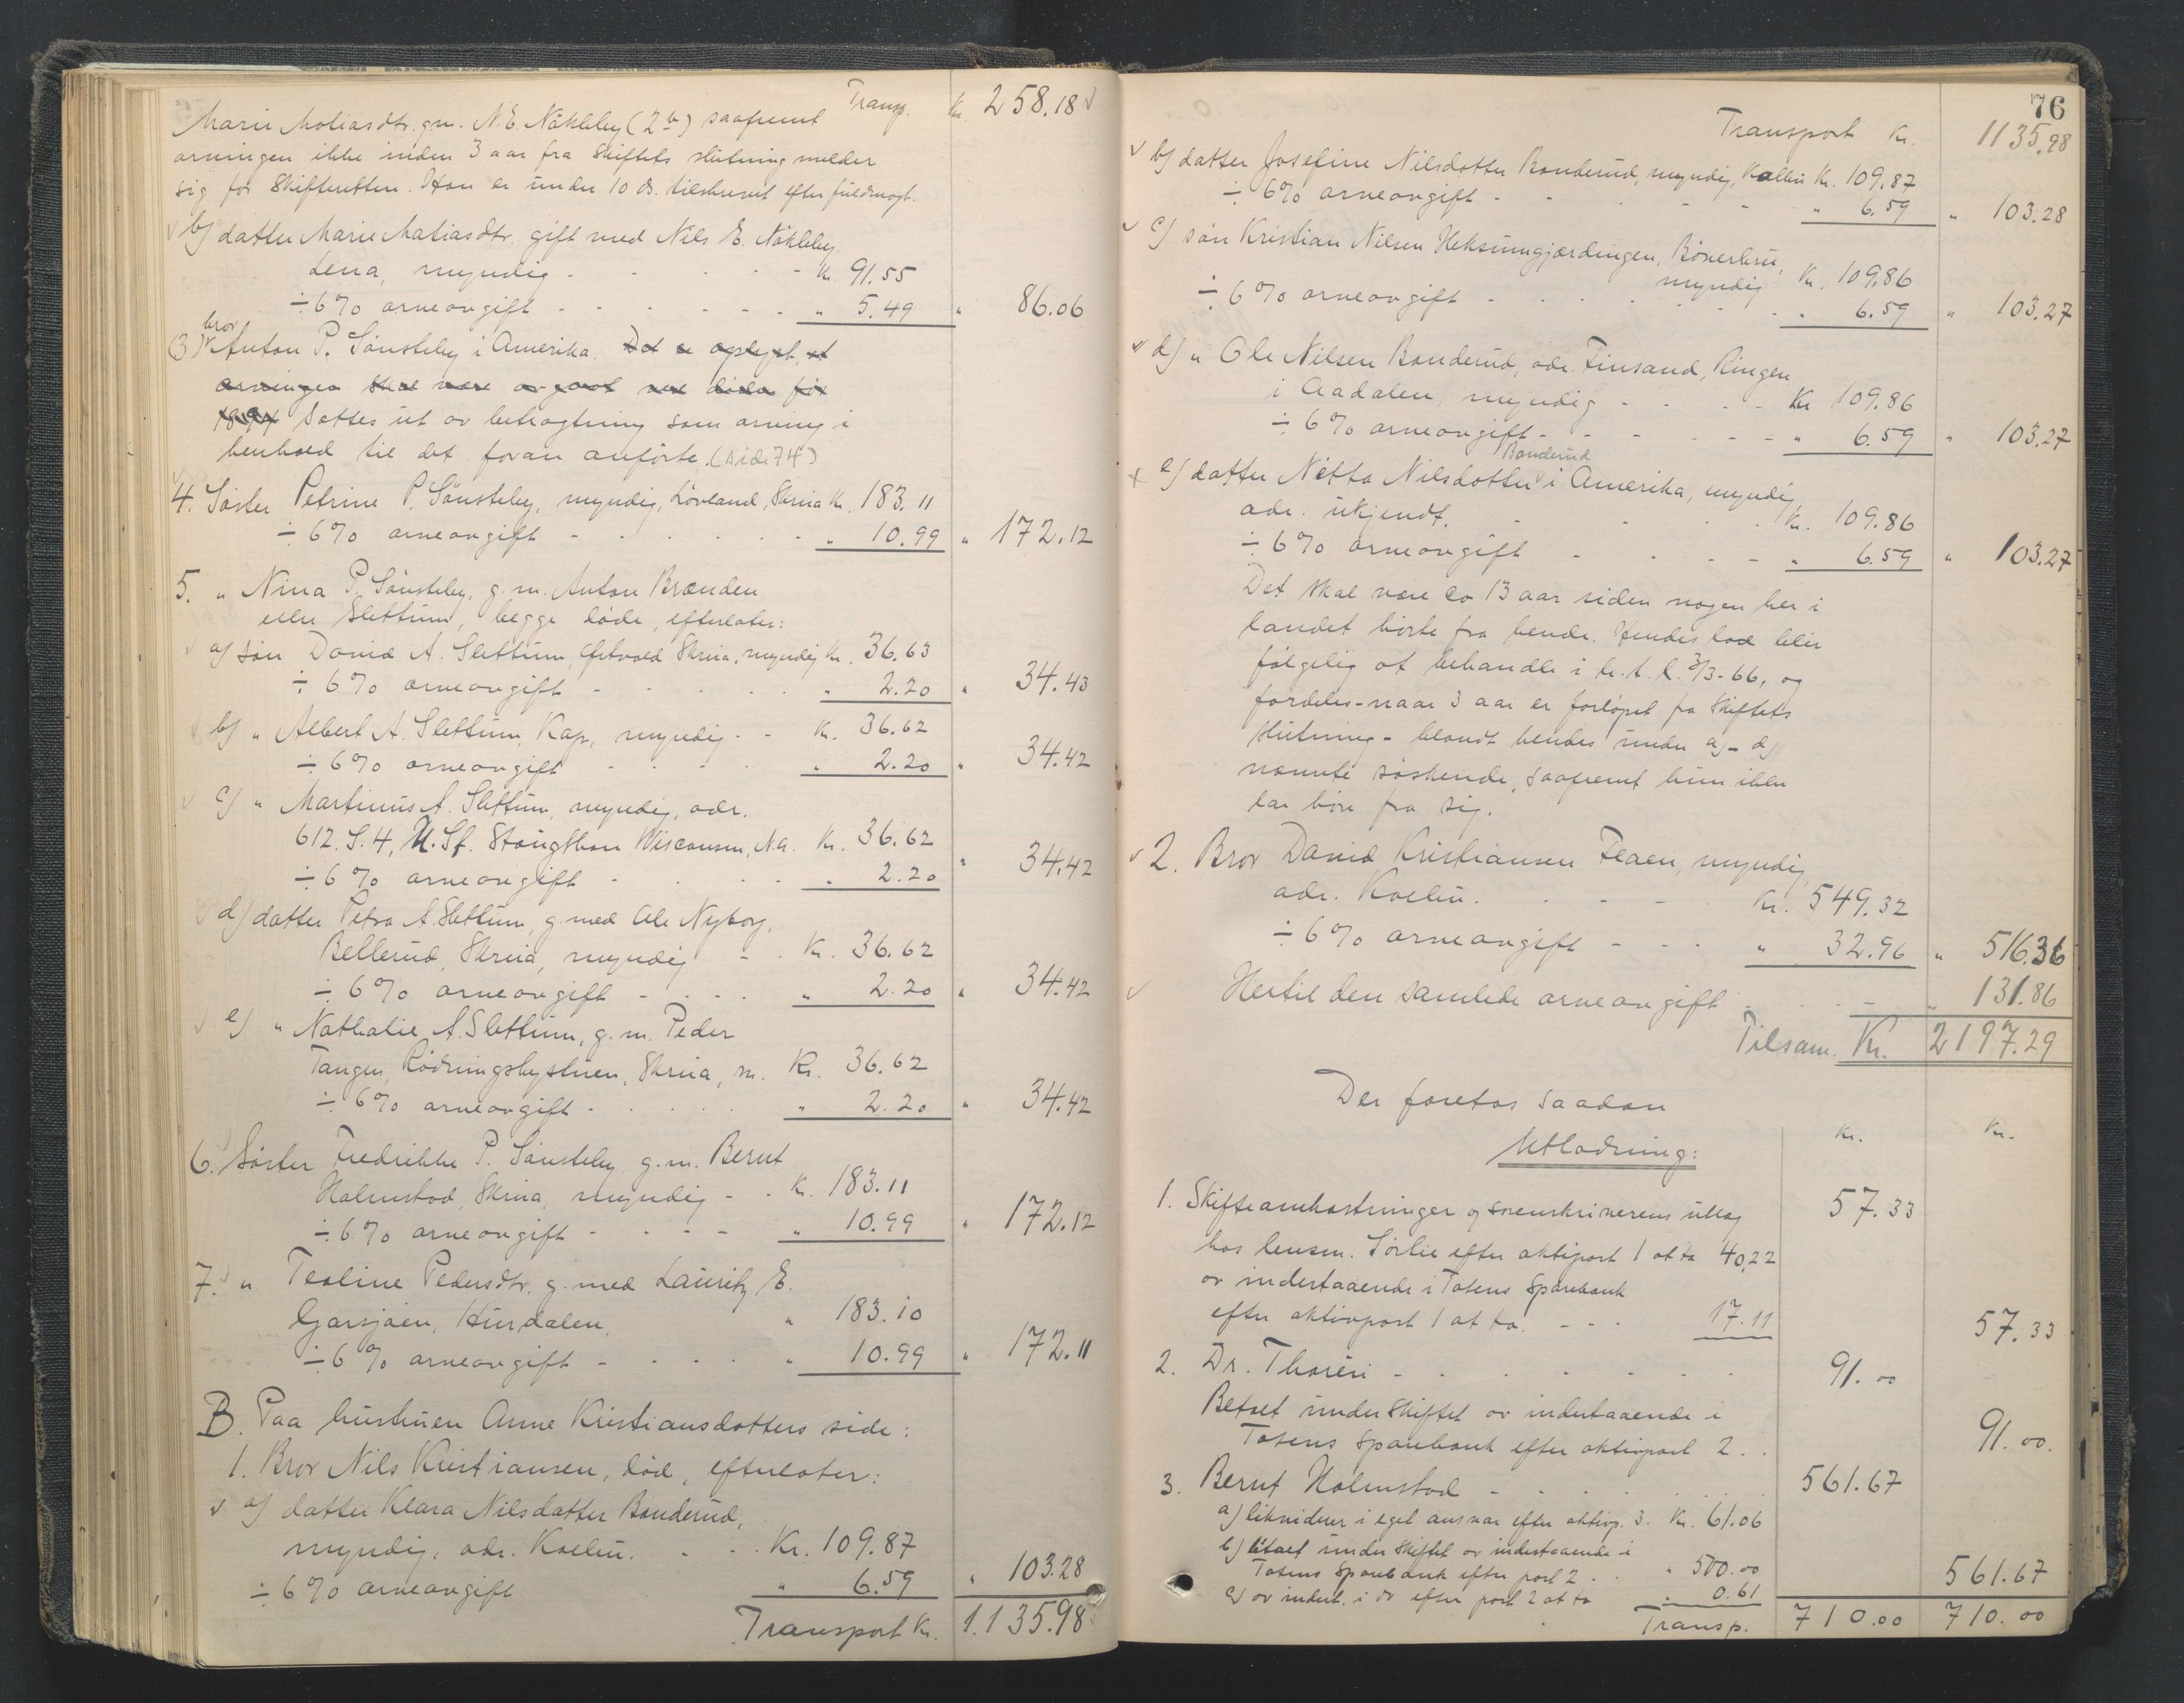 Transp. Kr. 258.18
Marie Matiasdtr. g.m. N.E. Nökleby (2 b) saafremt
arvingen ikke inden 3 aar fra skiftets slutning melder
sig for skifteretten. Han er under 10 ds. tilskrevet efter fuldmagt.
b) datter Marie Matiasdtr. gift med Nils E. Nökleby,
Lena, myndig - - - - Kr. 91.55
÷ 6% arveavgift - - - - " 5.49 " 86.06
bror
(3) Anton P. Sönsteby i Amerika. Det er oplyst, at
arvingen skal være avgaat ved döden för
1894 Sættes ut av betragtning som arving i
henhold til det foran anförte. (side 74)
4. Söster Petrine P. Sönsteby, myndig, Lövland, Skreia Kr. 183.11
÷ 6% arveavgift - - - - " 10.99 " 172.12
5. " Nina P. Sönsteby, g.m. Anton Brænden
eller Slettum, begge døde, efterlater:
a) sön David A. Slettum, Skreia, myndig Kr. 36.63
÷ 6% arveavgift - - - - " 2.20 " 34.43
b) " Albert A. Slettum, Kap, myndig - - Kr. 36.62
÷ 6% arveavgift - - - - " 2.20 " 34.42
c) " Martinus A. Slettum, myndig, adr.
612. S. 4, U. Sf. Stougthon Wisconsin, N.a. Kr. 36.62
÷ 6% arveavgift - - - " 2.20 " 34.42
d) datter Petra A. Slettum, g. med Ole Nyborg,
Bellerud, Skreia, myndig - Kr. 36.62
÷ 6% arveavgift - - - - " 2.20 " 34.42
e) " Nathalie A. Slettum, g.m. Peder
Tangen, Rödningsbystuen, Skreia, m. Kr. 36.62
÷ 6% arveavgift - - - - " 2.20 " 34.42
6. Söster Fredrikke P. Sönsteby g.m. Bernt
Holmstad, Skreia, myndig - - Kr. 183.11
÷ 6% arveavgift - - - - " 10.99 " 172.12
7. " Teoline Pedersdtr. g. med Lauritz E.
Garsjöen, Hurdalen, " 183.10
÷ 6% arveavgift - - - - " 10.99 " 172.11
B. Paa hustruen Anne Kristiansdotters side:
1. Bror Nils Kristiansen, död, efterlater:
a) datter Klara Nilsdatter Banderud,
myndig, adr. Kolbu. - - Kr. 109.87
÷ 6% arveavgift " 6.59 " 103.28
Transport Kr. 1.135.98
76
Transport Kr. 1135.98
b) datter Josefine Nilsdotter Banderud, myndig, Kolbu Kr. 109.87
÷ 6% arveavgift - - - - " 6.59 " 103.28
c) sön Kristian Nilsen Heksumgjærdingen, Bönerbru,
myndig Kr. 109.86
÷ 6% arveavgift - - - - " 6.59 " 103.27
d) " Ole Nilsen Banderud, adr. Finsand, Ringen
i Aadalen, myndig - - - - Kr 109.86
÷ 6% arveavgift - - - - - " 6.59 " 103.27
Banderud
e) datter Netta Nilsdotter i Amerika, myndig,
adr. ukjendt. - - - Kr. 109.86
÷ 6% arveavgift - - - - " 6.59 " 103.27
Det skal være ca 13 aar siden nogen her i
landet hörte fra hende. Hendes lod blir
fölgelig at behandle i h.t. l. 3/3-66, og
fordeles - naar 3 aar er forlöpet fra skiftets
slutning - blandt hendes under a) - d)
nævnte söskende, saafremt hun ikke
lar höre fra sig.
2. Bror David Kristiansen Flaen, myndig,
adr. Kolbu. - - - Kr. 549.32
÷ 6% arveavgift - - - " 32.96 " 516.36
Hertil den samlede arveavgift - - - " 131.86
Tilsam. Kr. 2197.29
Der foretas saadan
Utlodning:
Kr. Kr.
1. Skifteomkostninger og sorenskriverens utlæg 57.33
hos lensm. Sörlie efter aktivpost 1 at ta 40,22
av indestaaende i Totens Sparebank
efter aktivpost 1 at ta. - - - 17.11 57.33
2. Dr. Thorén - - - - - - 91.00
Betalt under skiftet av indestaaende i
Totens Sparebank efter aktivpost 2 . . 91.00.
3. Bernt Holmstad - - - - 561.67
a) likviderer i eget ansvar efter aktivp. 3. Kr. 61.06
b) betalt under skiftet av indestaaende i
Totens Sparebank efter post 2 . . " 500.00
c) av indest. i do efter post 2 at ta " 0.61 561.67
Transp. 710.00 710.00